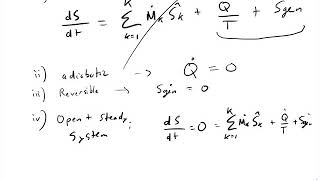 dS/dt = Σ_{k=1}^{K} Ṁ_k Ŝ_k + Q̇/T + Ṡgen
ii) adiabatic Q̇ = 0
iii) Reversible Ṡgen = 0
iv) Open + steady system: dS/dt = 0 = Σ_{k=1}^{K} Ṁ_k Ŝ_k + Q̇/T + Ṡgen